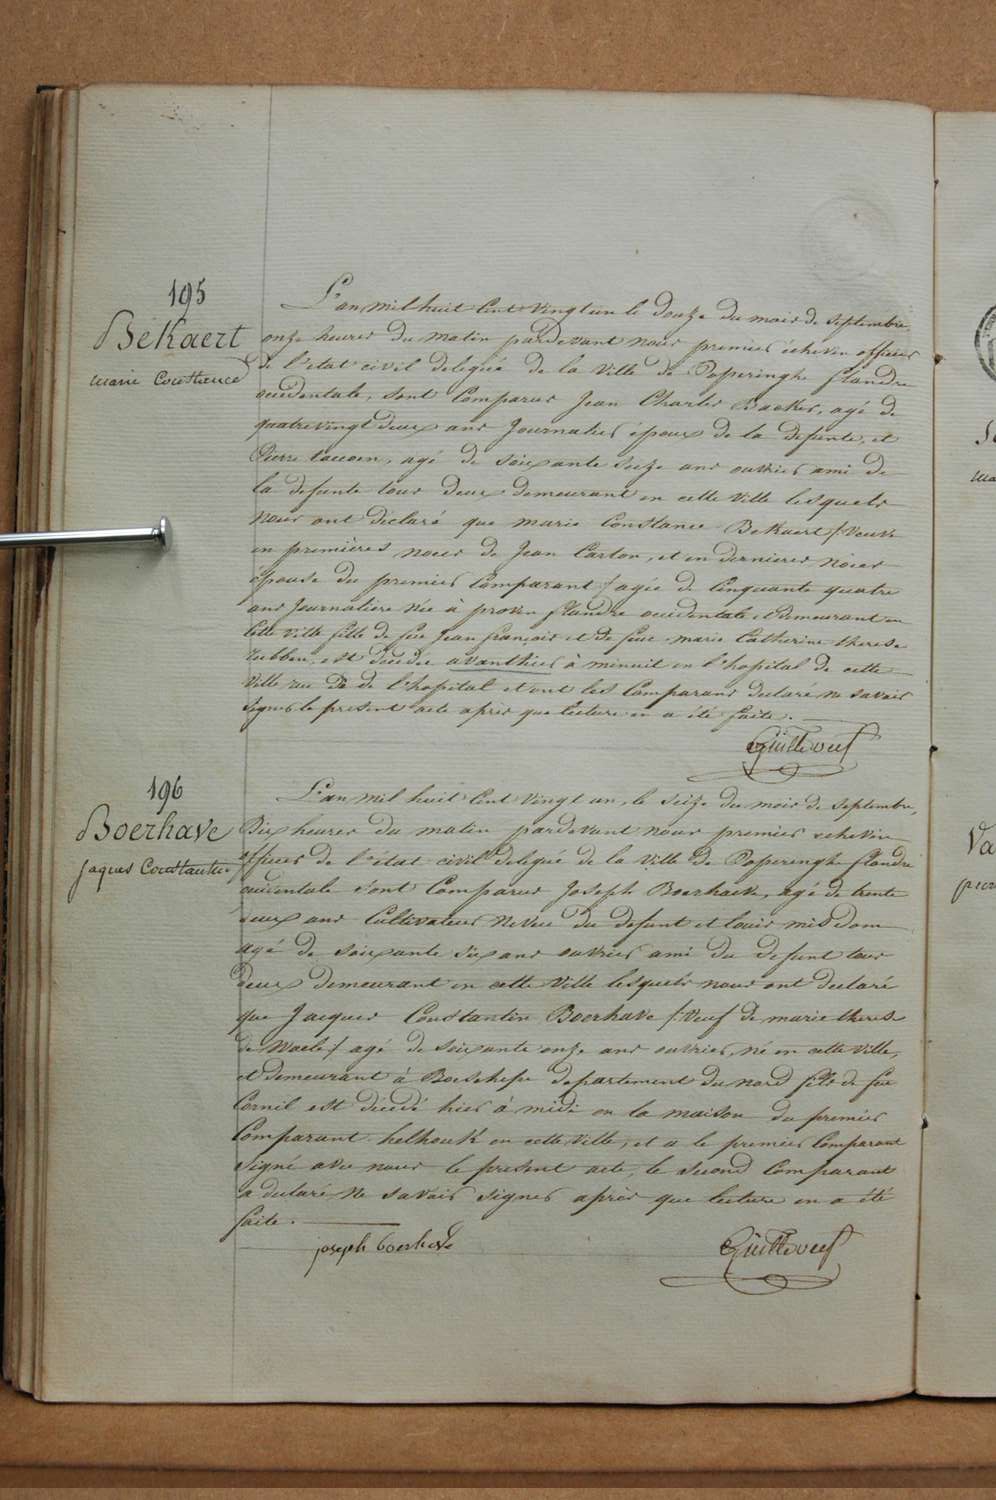 195
Bekaert
marie Constance
L'an mil huit Cent vingt un le douze du mois de Septembre
onze heures du matin pardevant nous premier échevin officier
de l'état civil delegué de la Ville de Poperinghe flandre
occidentale, sont Comparus Jean Charles Backer, agé de
quatrevingt deux ans Journalier époux de la defunte, et
Pierre Caucoen, agé de soixante seize ans ouvrier ami de
la defunte tous deux demeurant en cette ville lesquels
nous ont déclaré que marie Constance Bekaert /: Veuve
en premières noces de Jean Carton, et en dernieres noces
épouse du premier Comparant / agée de Cinquante quatre
ans Journalière née à proven flandre occidentale et demeurant en
Cette Ville fille de feu Jean françois et de feue marie Catherine therese
est décédée avanthier à minuit en l'hopital de cette
Ville rue de l'hopital et ont les Comparans declaré ne savoir
signer le present acte après que lecture en a été faite.
196
Boerhave
Jaques Constantin
L'an mil huit Cent vingt un, le seize du mois de septembre,
Dix heures du matin pardevant nous premier echevin
officier de l'état civil delegué de la Ville de Poperinghe flandre
occidentale sont Comparus Joseph Boerhave, agé de trente
deux ans Cultivateur Neveu du defunt et Louis misdom
agé de soixante six ans ouvrier ami du defunt tous
deux demeurant en cette Ville lesquels nous ont declaré
que Jacques Constantin Boerhave /: Veuf de marie therese
de Waele / agé de soixante onze ans ouvrier, né en cette Ville,
et demeurant à Boeschepe departement du nord fils de feu
Cornil est décédé hier à midi en la maison du premier
Comparant helhouk en cette Ville, et a le premier Comparant
signé avec nous le present acte, le second Comparant
a declaré ne savoir signer après que lecture en a été
faite.
joseph boerhave